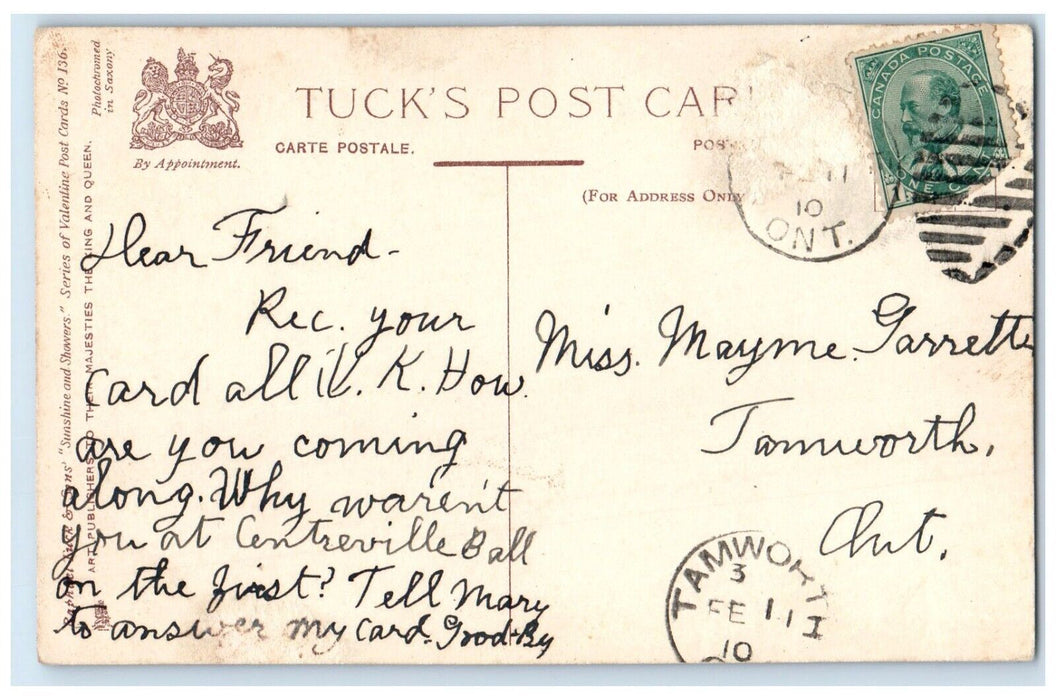 Raphael Tuck & Sons' "Sunshine and Showers." Series of Valentine Post Cards Nº 136.
ART PUBLISHERS TO THEIR MAJESTIES THE KING AND QUEEN.
Photochromed
in Saxony
By Appointment.
TUCK'S POST CAR
CARTE POSTALE.
POS
(FOR ADDRESS ONLY
CANADA POSTAGE
ONE CENT
1
11
10
ONT.
Dear Friend-
Rec. your
card all O. K. How
are you coming
along. Why waren't
you at Centreville Ball
on the first? Tell Mary
to answer my card. Good-By
Miss. Mayme. Garrette
Tamworth,
Ont.
TAMWORTH
3
FE 11
10